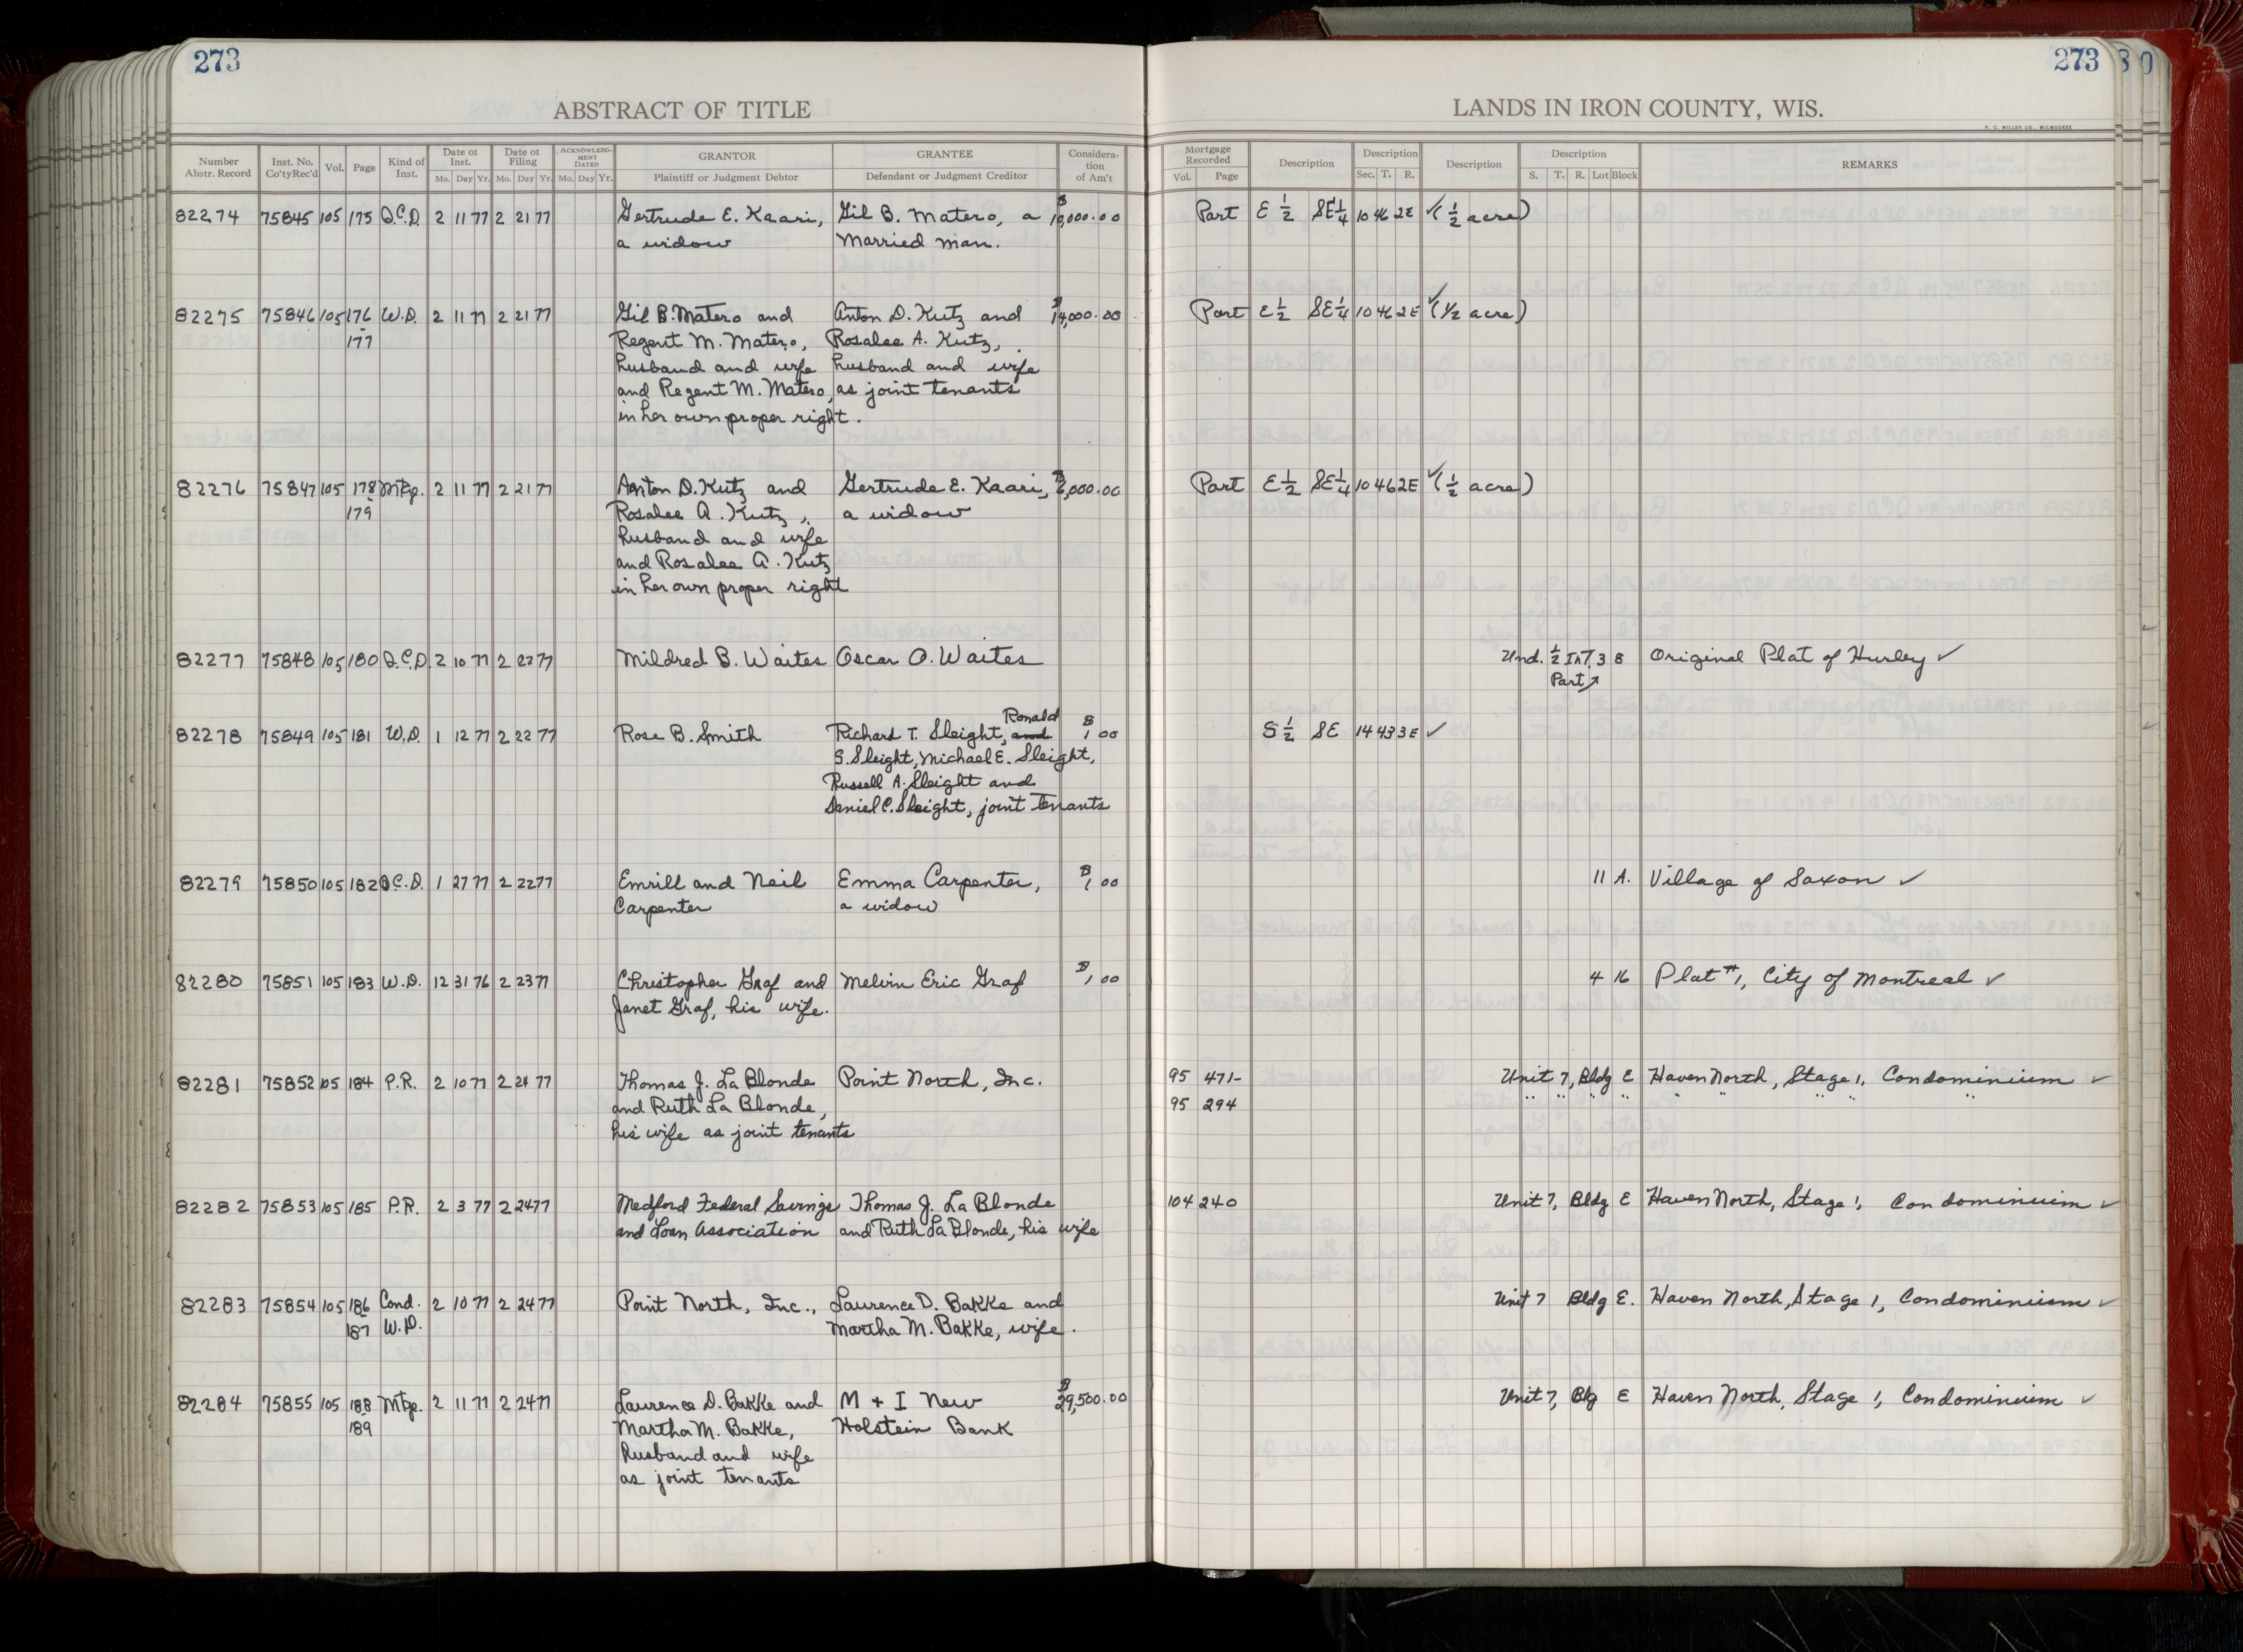 273
273
80
ABSTRACT OF TITLE
LANDS IN IRON COUNTY, WIS.
H. C. MILLER CO., MILWAUKEE
Number Abstr. Record
Inst. No. Co'ty Rec'd
Vol.
Page
Kind of Inst.
Date of Inst. Mo. Day Yr.
Date of Filing Mo. Day Yr.
ACKNOWLEDGMENT DATED Mo. Day Yr.
GRANTOR Plaintiff or Judgment Debtor
GRANTEE Defendant or Judgment Creditor
Consideration of Am't
Mortgage Recorded Vol. Page
Description
Description Sec. T. R.
Description
Description S. T. R. Lot Block
REMARKS
82274 75845 105 175 Q.C.D. 2 11 77 2 21 77 Gertrude E. Kaari, Gil B. Matero, a $10,000.00 Part E 1/2 SE 1/4 10 46 2E ✓ (1/2 acre)
a widow Married man.
82275 75846 105 176 W.D. 2 11 77 2 21 77 Gil B. Matero and Anton D. Kutz and $14,000.00 Part E 1/2 SE 1/4 10 46 2E ✓ (1/2 acre)
- 177 Regent M. Matero, Rosalee A. Kutz,
husband and wife husband and wife
and Regent M. Matero, as joint tenants
in her own proper right.
82276 75847 105 178 Mtge. 2 11 77 2 21 77 Anton D. Kutz and Gertrude E. Kaari, $6,000.00 Part E 1/2 SE 1/4 10 46 2E ✓ (1/2 acre)
- 179 Rosalee A. Kutz, a widow
husband and wife
and Rosalee A. Kutz
in her own proper right
82277 75848 105 180 Q.C.D 2 10 77 2 22 77 Mildred B. Waites Oscar O. Waites Und. 1/2 Int. 3 8 Original Plat of Hurley ✓
Part
82278 75849 105 181 W.D. 1 12 77 2 22 77 Rose B. Smith Richard T. Sleight, and Ronald $1.00 S 1/2 SE 14 43 3E ✓
S. Sleight, Michael E. Sleight,
Russell A. Sleight and
Daniel C. Sleight, joint tenants
82279 75850 105 182 Q.C.D. 1 27 77 2 22 77 Emrill and Neil Emma Carpenter, $1.00 11 A. Village of Saxon ✓
Carpenter a widow
82280 75851 105 183 W.D. 12 31 76 2 23 77 Christopher Graf and Melvin Eric Graf $1.00 4 16 Plat #1, City of Montreal ✓
Janet Graf, his wife.
82281 75852 105 184 P.R. 2 10 77 2 24 77 Thomas J. La Blonde Point North, Inc. 95 471- Unit 7, Bldg E Haven North, Stage 1, Condominium ✓
and Ruth La Blonde, 95 294 " " " " " " " " "
his wife as joint tenants
82282 75853 105 185 P.R. 2 3 77 2 24 77 Medford Federal Savings Thomas J. La Blonde 104 240 Unit 7, Bldg E Haven North, Stage 1, Condominium ✓
and Loan Association and Ruth La Blonde, his wife
82283 75854 105 186 Cond. 2 10 77 2 24 77 Point North, Inc., Laurence D. Bakke and Unit 7 Bldg E. Haven North, Stage 1, Condominium ✓
187 W.D. Martha M. Bakke, wife.
82284 75855 105 188 Mtge. 2 11 77 2 24 77 Laurence D. Bakke and M + I New $29,500.00 Unit 7, Blg E Haven North, Stage 1, Condominium ✓
189 Martha M. Bakke, Holstein Bank
husband and wife
as joint tenants